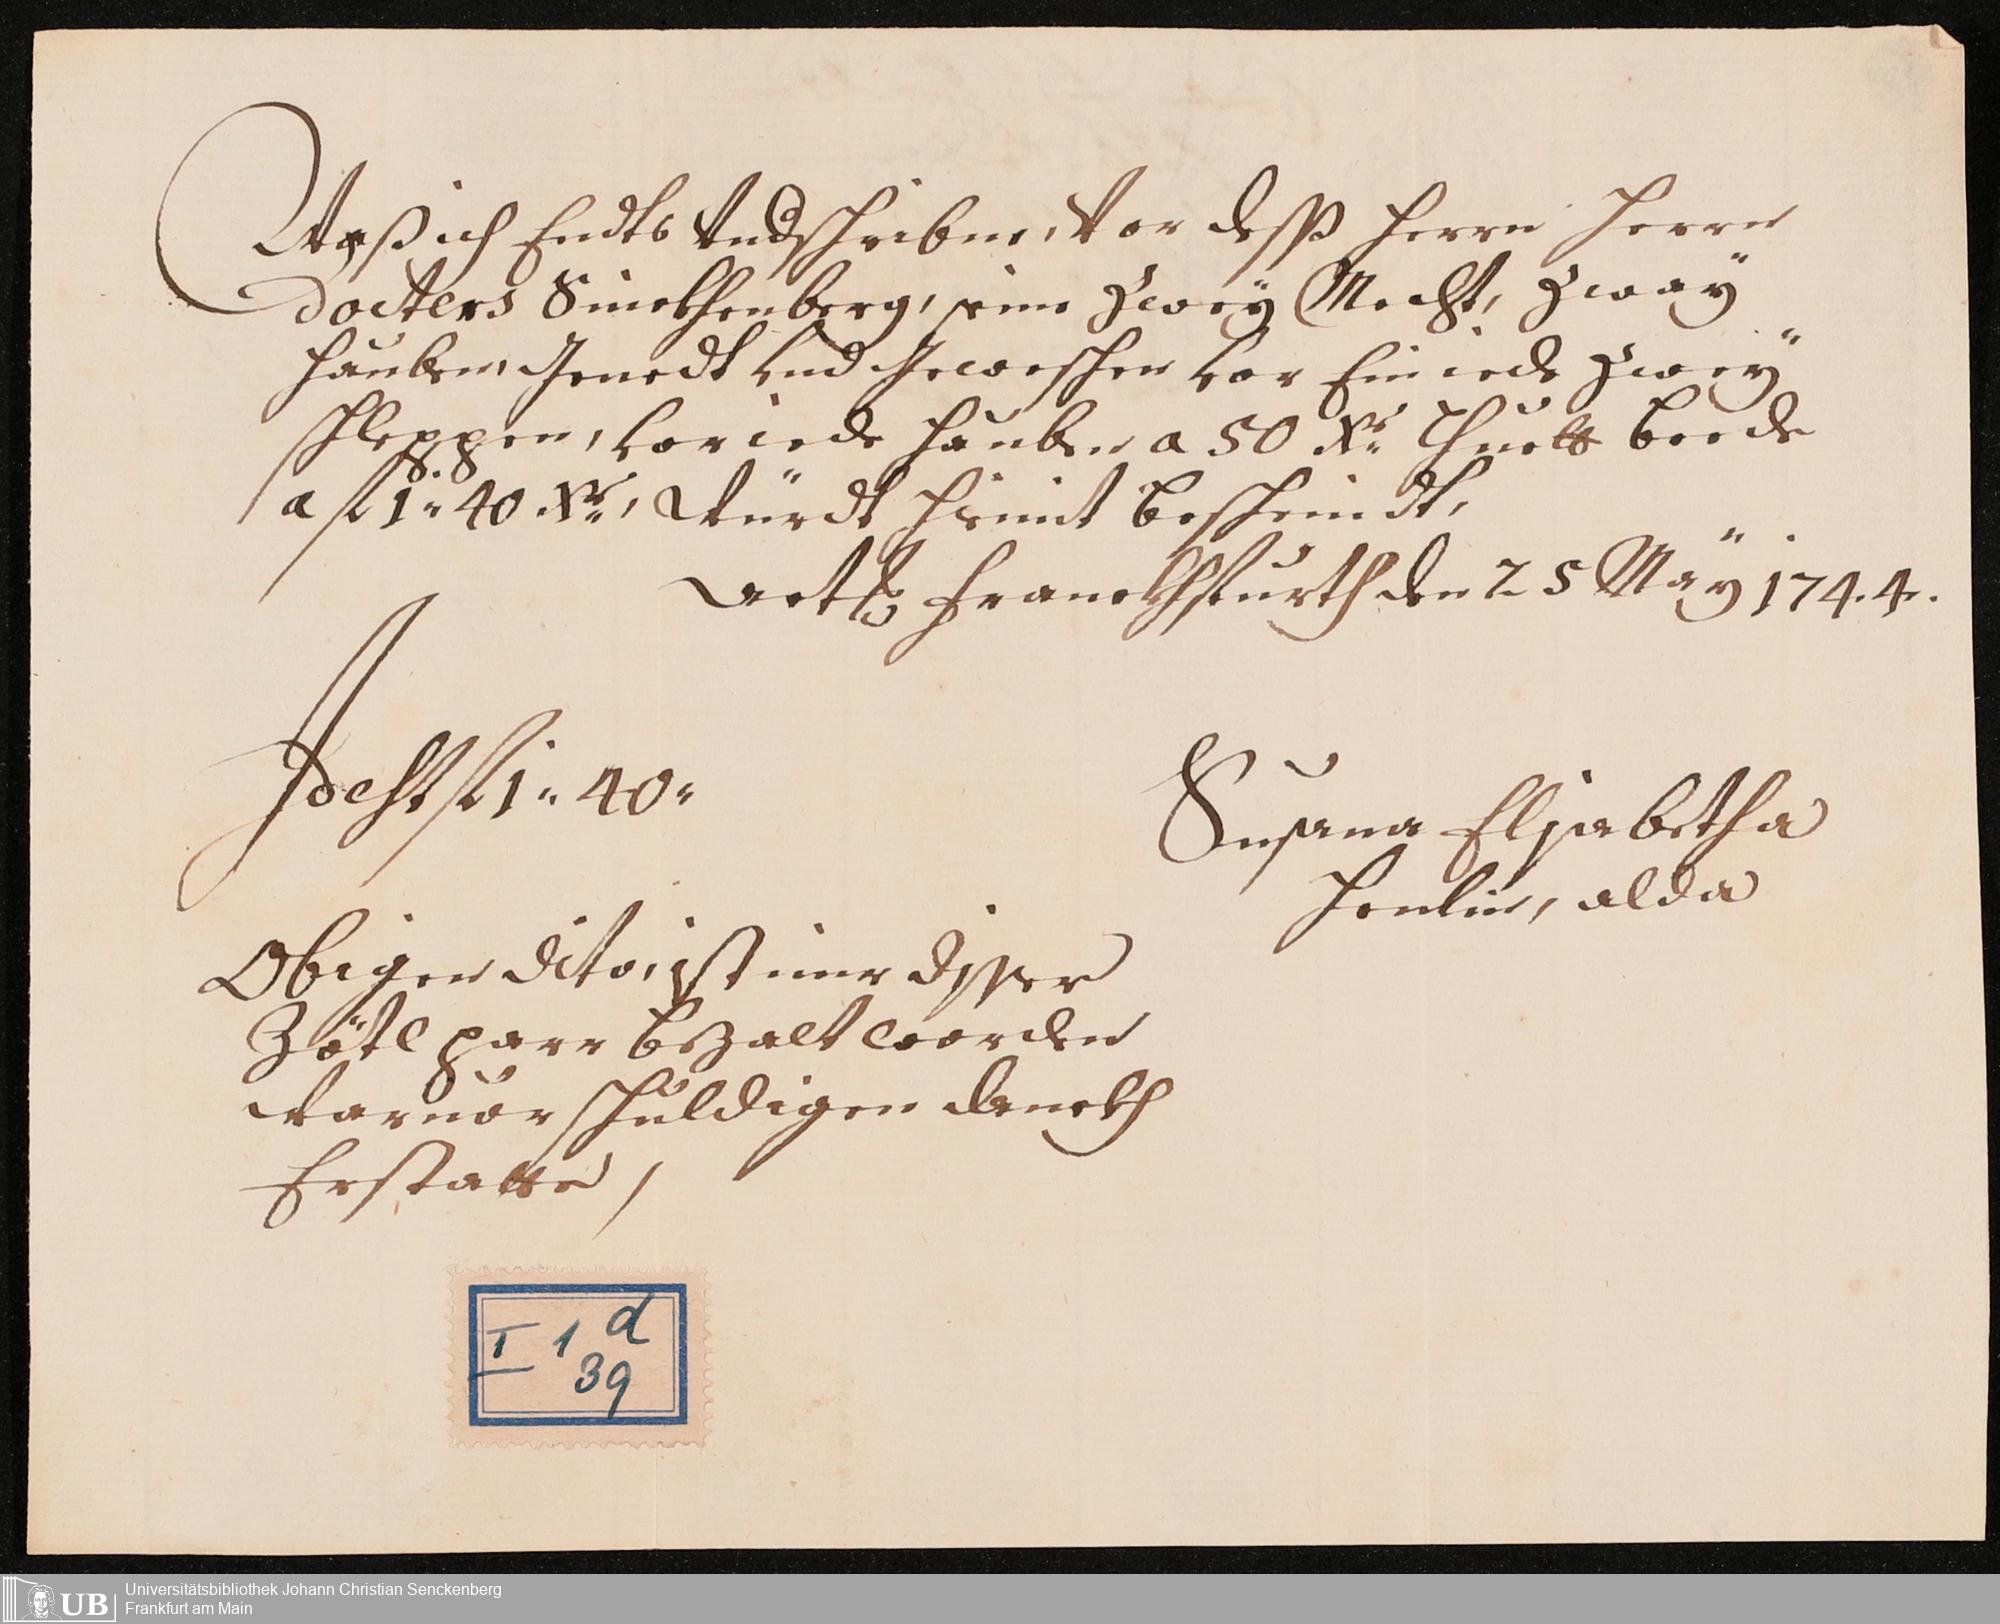 Waß ich Endts Undschribne, Vor deß Herrn Herrn
Docters Sinckhenberg, seine Zwey Mecht, Zway
Hauben, Genedt und Geweschen vor Ein iede Zwey
Schleppen, vor iede Hauben a 50 Xr. Thuett beede
a f 1 " 40 Xr., Würdt Hiemit bescheindt,
Actt Franckhfurth den 25 May 1744.
Idest f 1 " 40 "
Susana Elisabetha
Henlin, alda
Obigen dito, ist mir disser
Zötl parr bezalt worden
Warvor schuldigen danckh
Erstatte /
I 1 d
39
Universitätsbibliothek Johann Christian Senckenberg
UB Frankfurt am Main